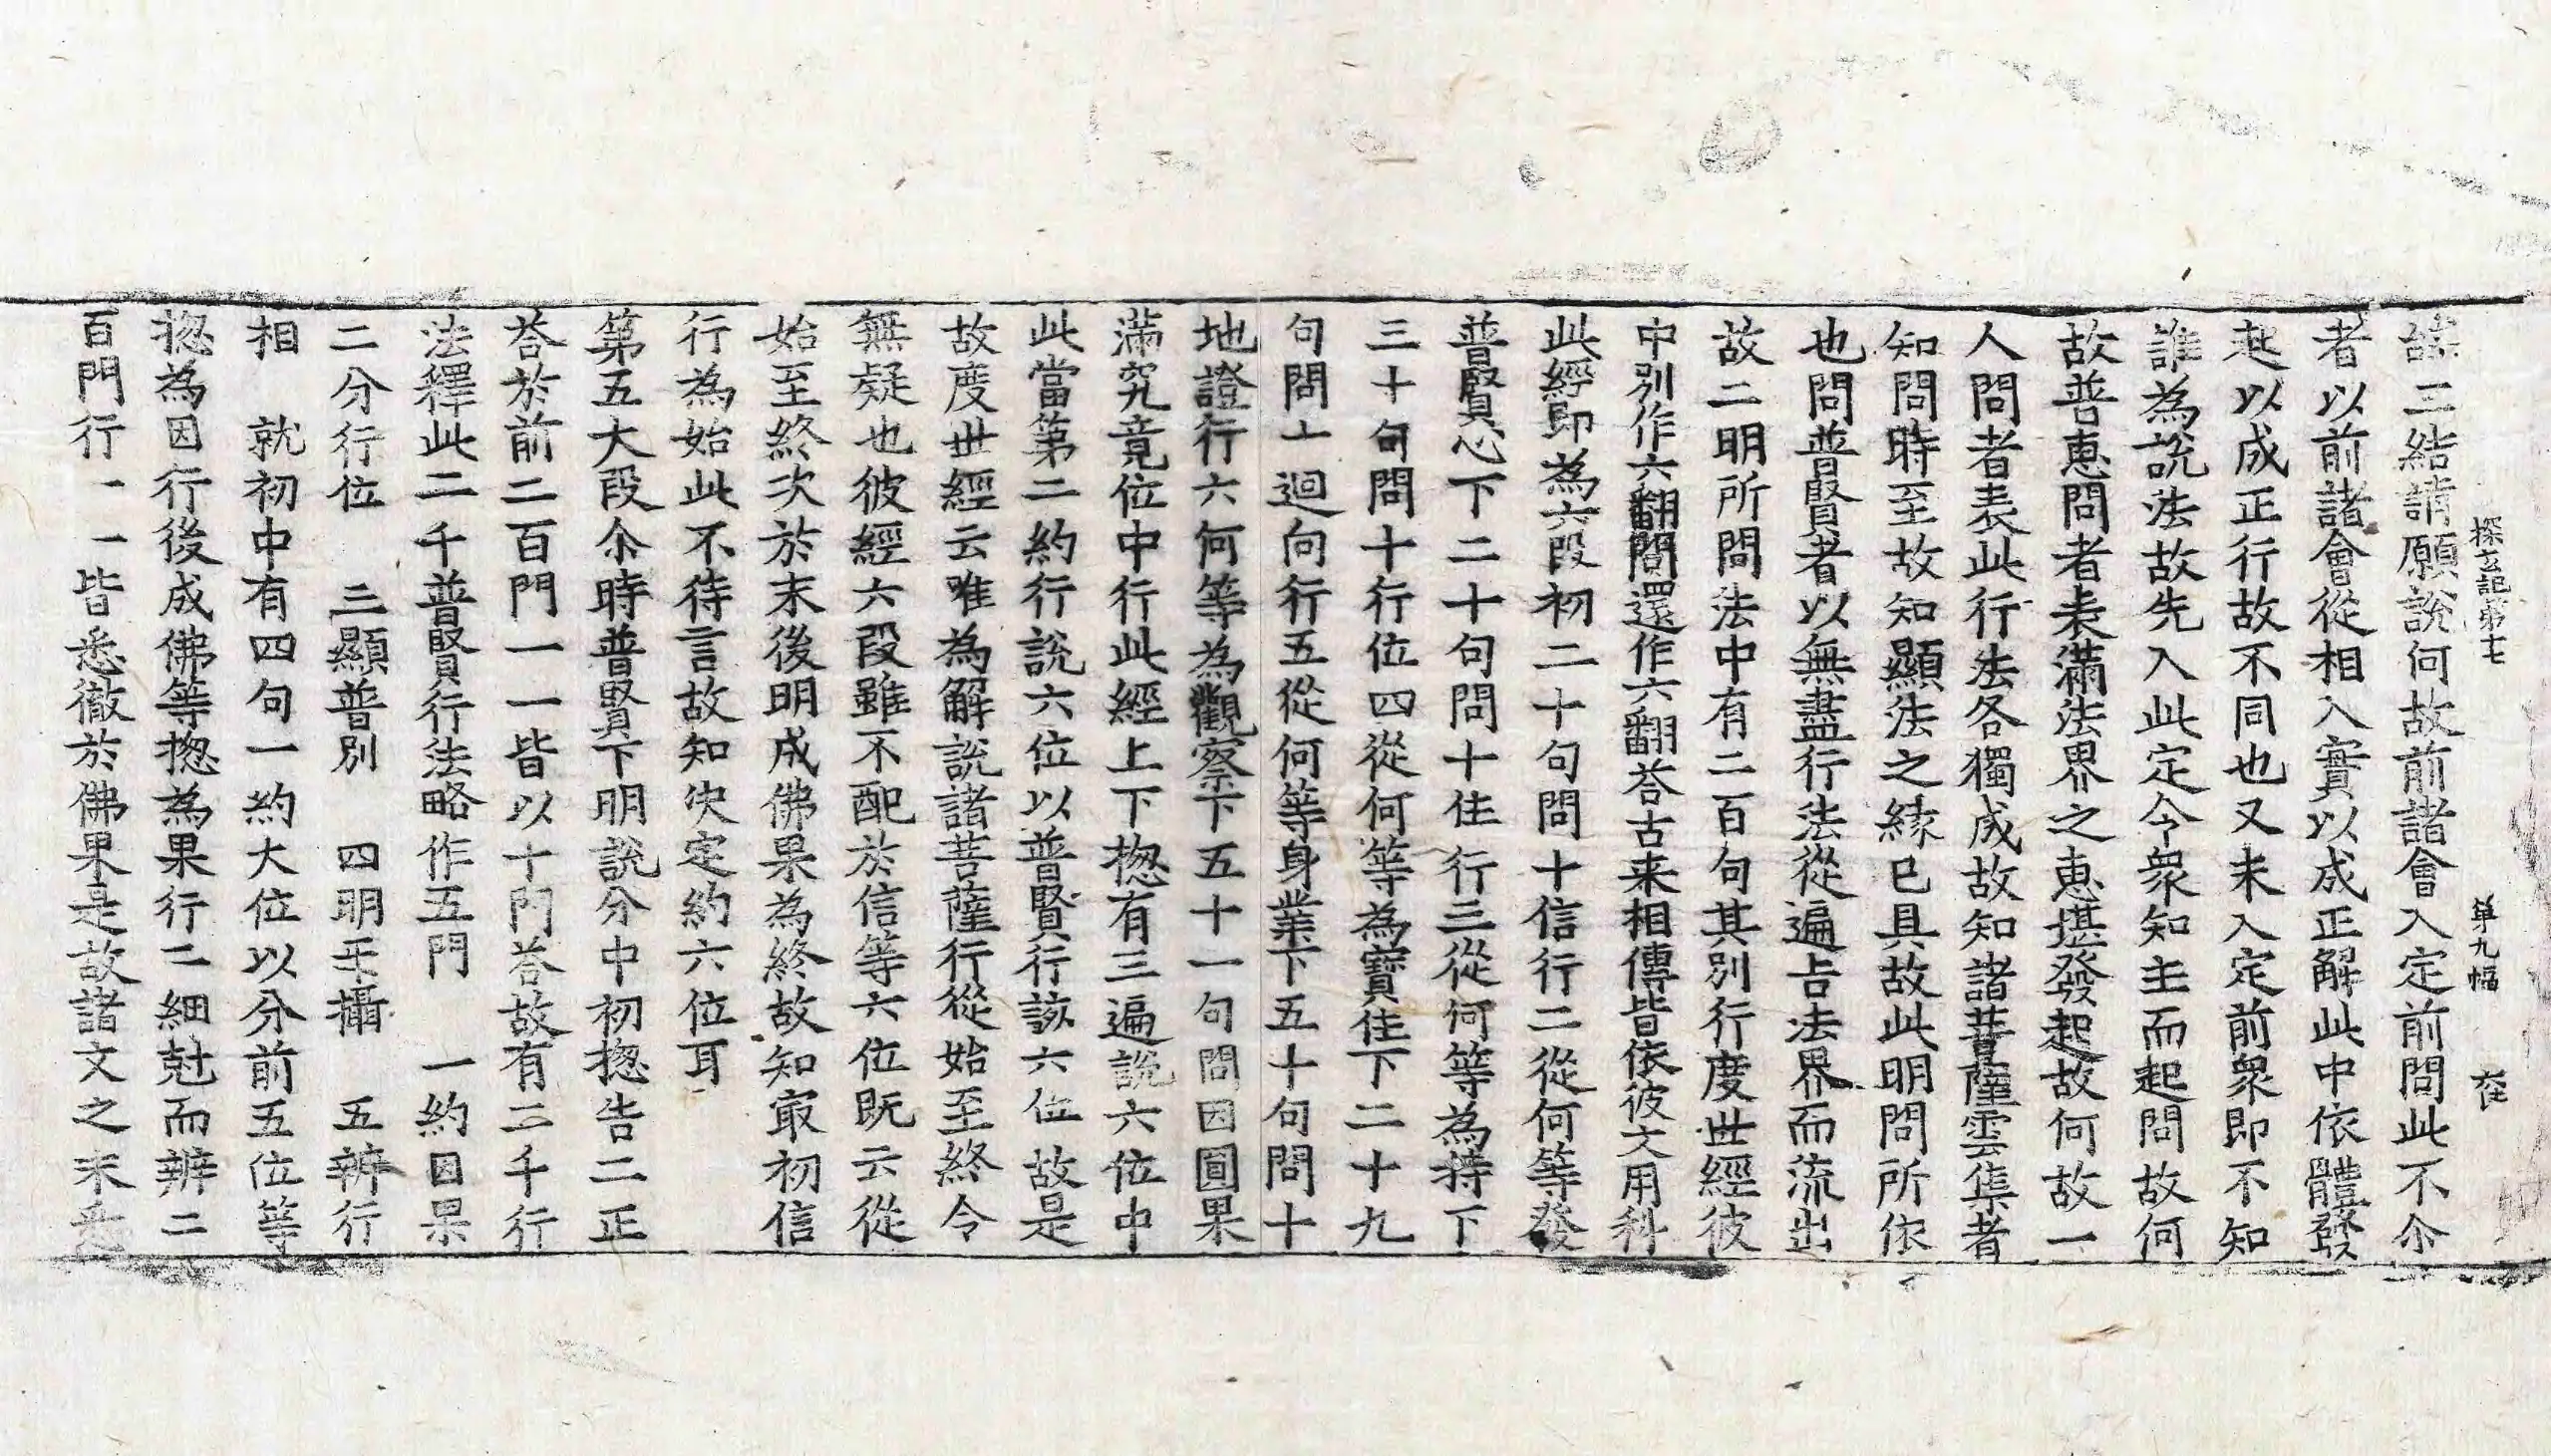 探玄記第十七 第九幅 伏
誒三結請願說何故前諸會入定前問此不尒
者以前諸會從相入實以成正解此中依體發
起以成正行故不同也又未入定前衆即不知
誰為說法故先入此定令衆知主而起問故何
故普恵問者表滿法界之恵堪發起故何故一
人問者表此行法各獨成故知諸菩薩雲集者
知問時至故知顯法之緣已具故此明問所依
也問普賢者以無盡行法從遍吉法界而流出
故二明所問法中有二百句其別行度世經彼
中別作六翻問還作六翻荅古来相傳皆依彼文用科
此經即為六段初二十句問十信行二從何等發
普賢心下二十句問十住行三從何等為持下
三十句問十行位四從何等為寶住下二十九
句問十迴向行五從何等身業下五十句問十
地證行六何等為觀察下五十一句問因圓果
滿究竟位中行此經上下揔有三遍說六位中
此當第二約行說六位以普賢行該六位故是
故度世經云唯為解說諸菩薩行從始至終令
無疑也彼經六段雖不配於信等六位既云從
始至終次於末後明成佛果為終故知㝡初信
行為始此不待言故知決定約六位耳
第五大段尒時普賢下明說分中初揔告二正
荅於前二百門一一皆以十門荅故有二千行
法釋此二千普賢行法略作五門 一約因果
二分行位 三顯普別 四明㸦攝 五辨行
相 就初中有四句一約大位以分前五位等
揔為因行後成佛等揔為果行二細尅而辨二
百門行一一皆悉徹於佛果是故諸文之末悉